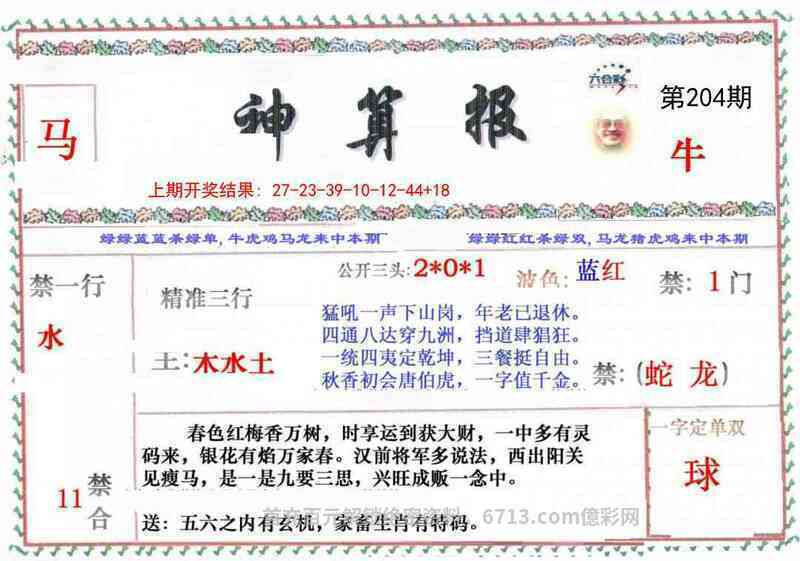 神算报
六合彩
第204期
马
牛
上期开奖结果：27-23-39-10-12-44+18
绿绿蓝蓝杀绿单,牛虎鸡马龙来中本期
绿绿红红杀绿双,马龙猪虎鸡来中本期
禁一行
水
精准三行
土:木水土
公开三头:2*0*1
波色:蓝红
禁:1门
猛吼一声下山岗，年老已退休。
四通八达穿九洲，挡道肆猖狂。
一统四夷定乾坤，三餐挺自由。
秋香初会唐伯虎，一字值千金。
禁:(蛇 龙)
11
禁合
春色红梅香万树，时享运到获大财，一中多有灵
码来，银花有焰万家春。汉前将军多说法，西出阳关
见瘦马，是一是九要三思，兴旺成贩一念中。
送：五六之内有玄机，家畜生肖有特码。
一字定单双
球
6713.com億彩网